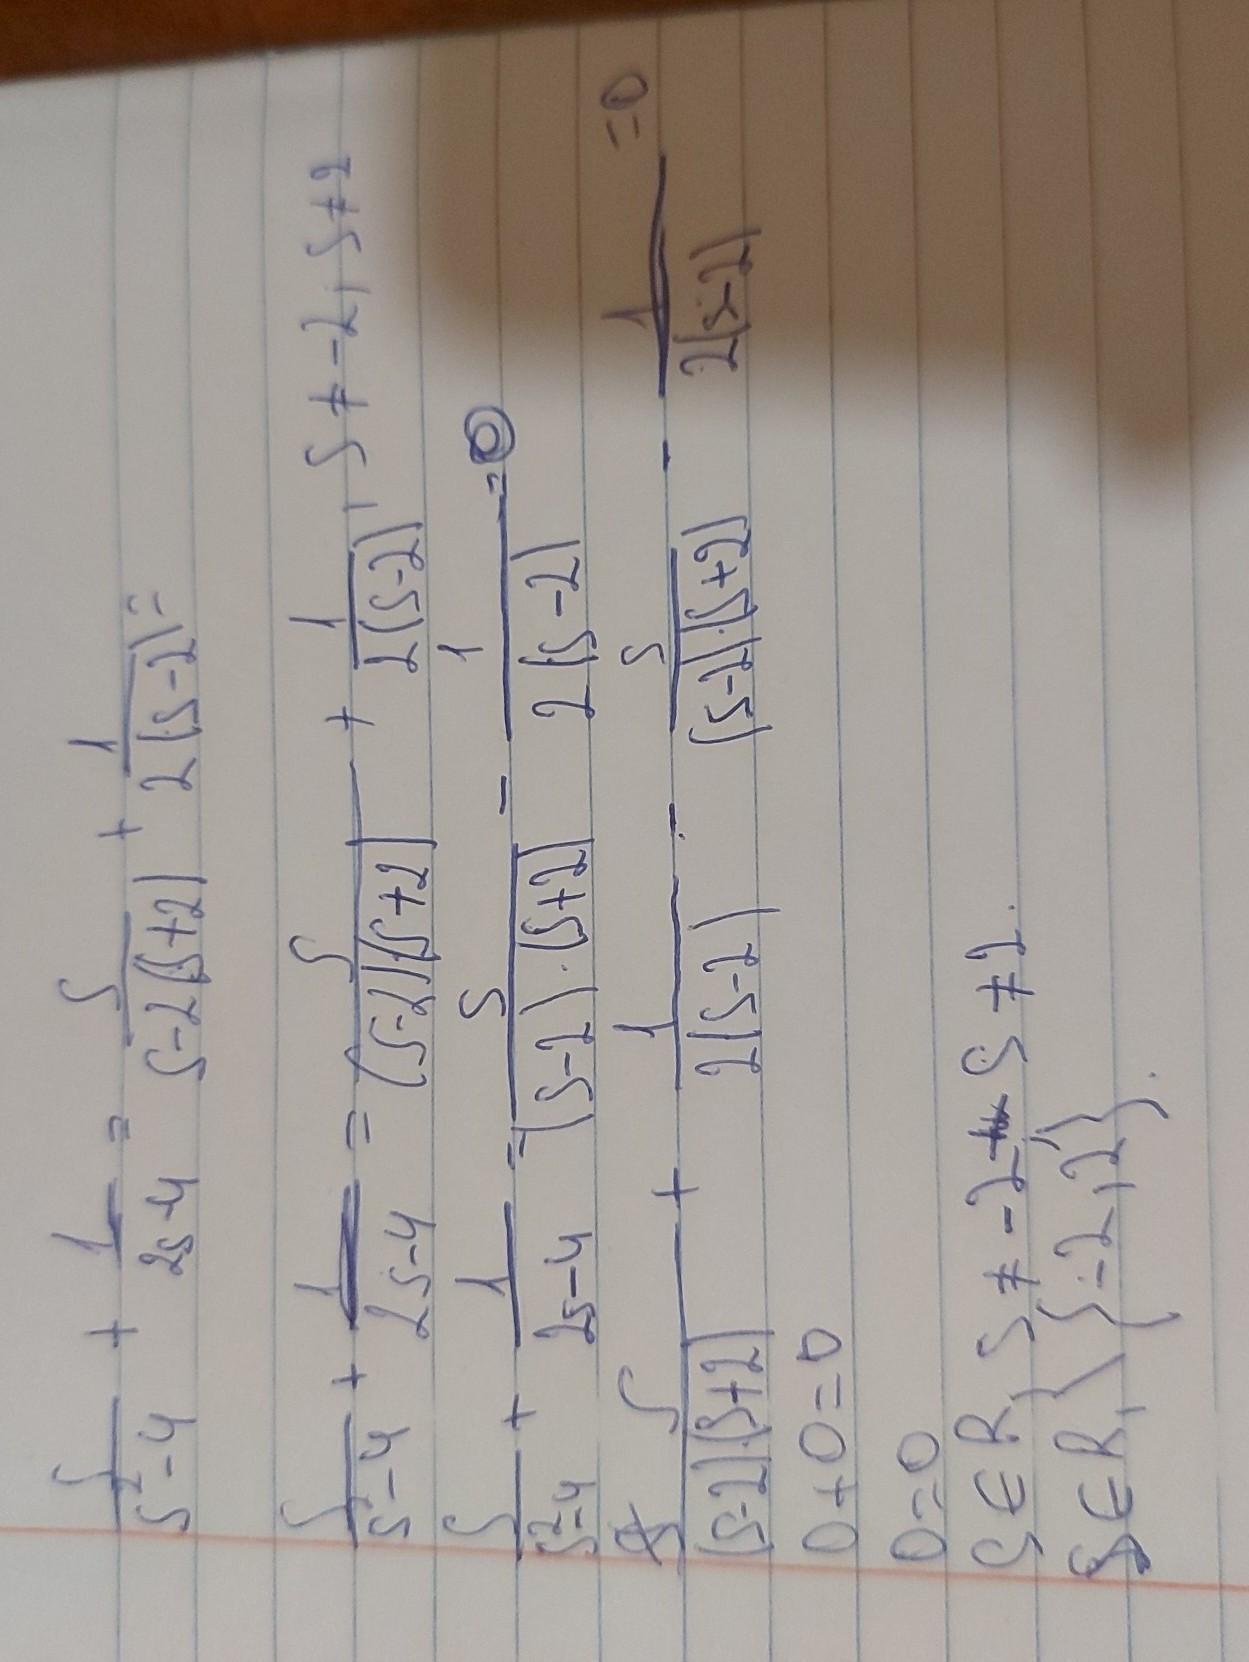 s/(s²-4) + 1/(2s-4) = s/(s-2(s+2)) + 1/(2(s-2)) =
s/(s²-4) + 1/(2s-4) = s/((s-2)(s+2)) + 1/(2(s-2)), s ≠ -2, s ≠ 2
s/(s²-4) + 1/(2s-4) - s/((s-2)·(s+2)) - 1/(2(s-2)) = 0
s/((s-2)·(s+2)) + 1/(2(s-2)) - s/((s-2)·(s+2)) - 1/(2(s-2)) = 0
0+0=0
0=0
S ∈ R, S ≠ -2, S ≠ 2.
S ∈ R, \ {-2,2}.